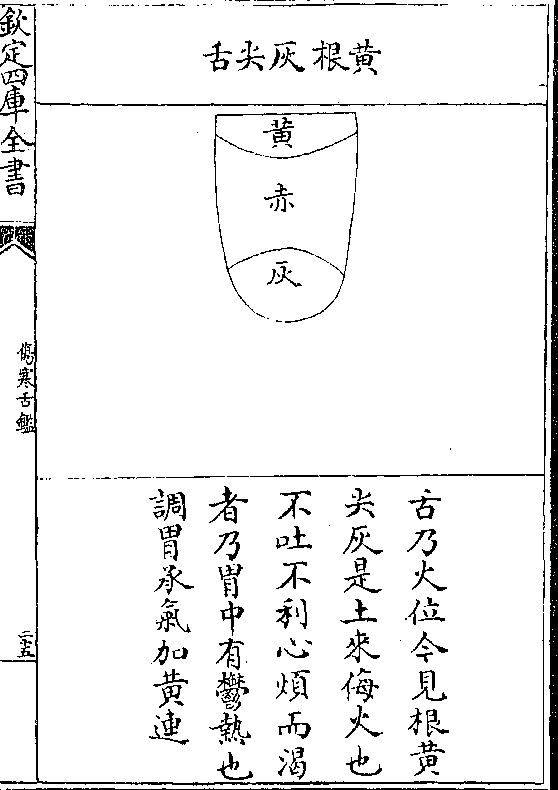 黄根灰尖舌
黄
赤
灰
舌乃火位今見根黄
尖灰是土來侮火也
不吐不利心煩而渴
者乃胃中有鬱熱也
調胃承氣加黄連
欽定四庫全書
傷寒舌鑑
二十五